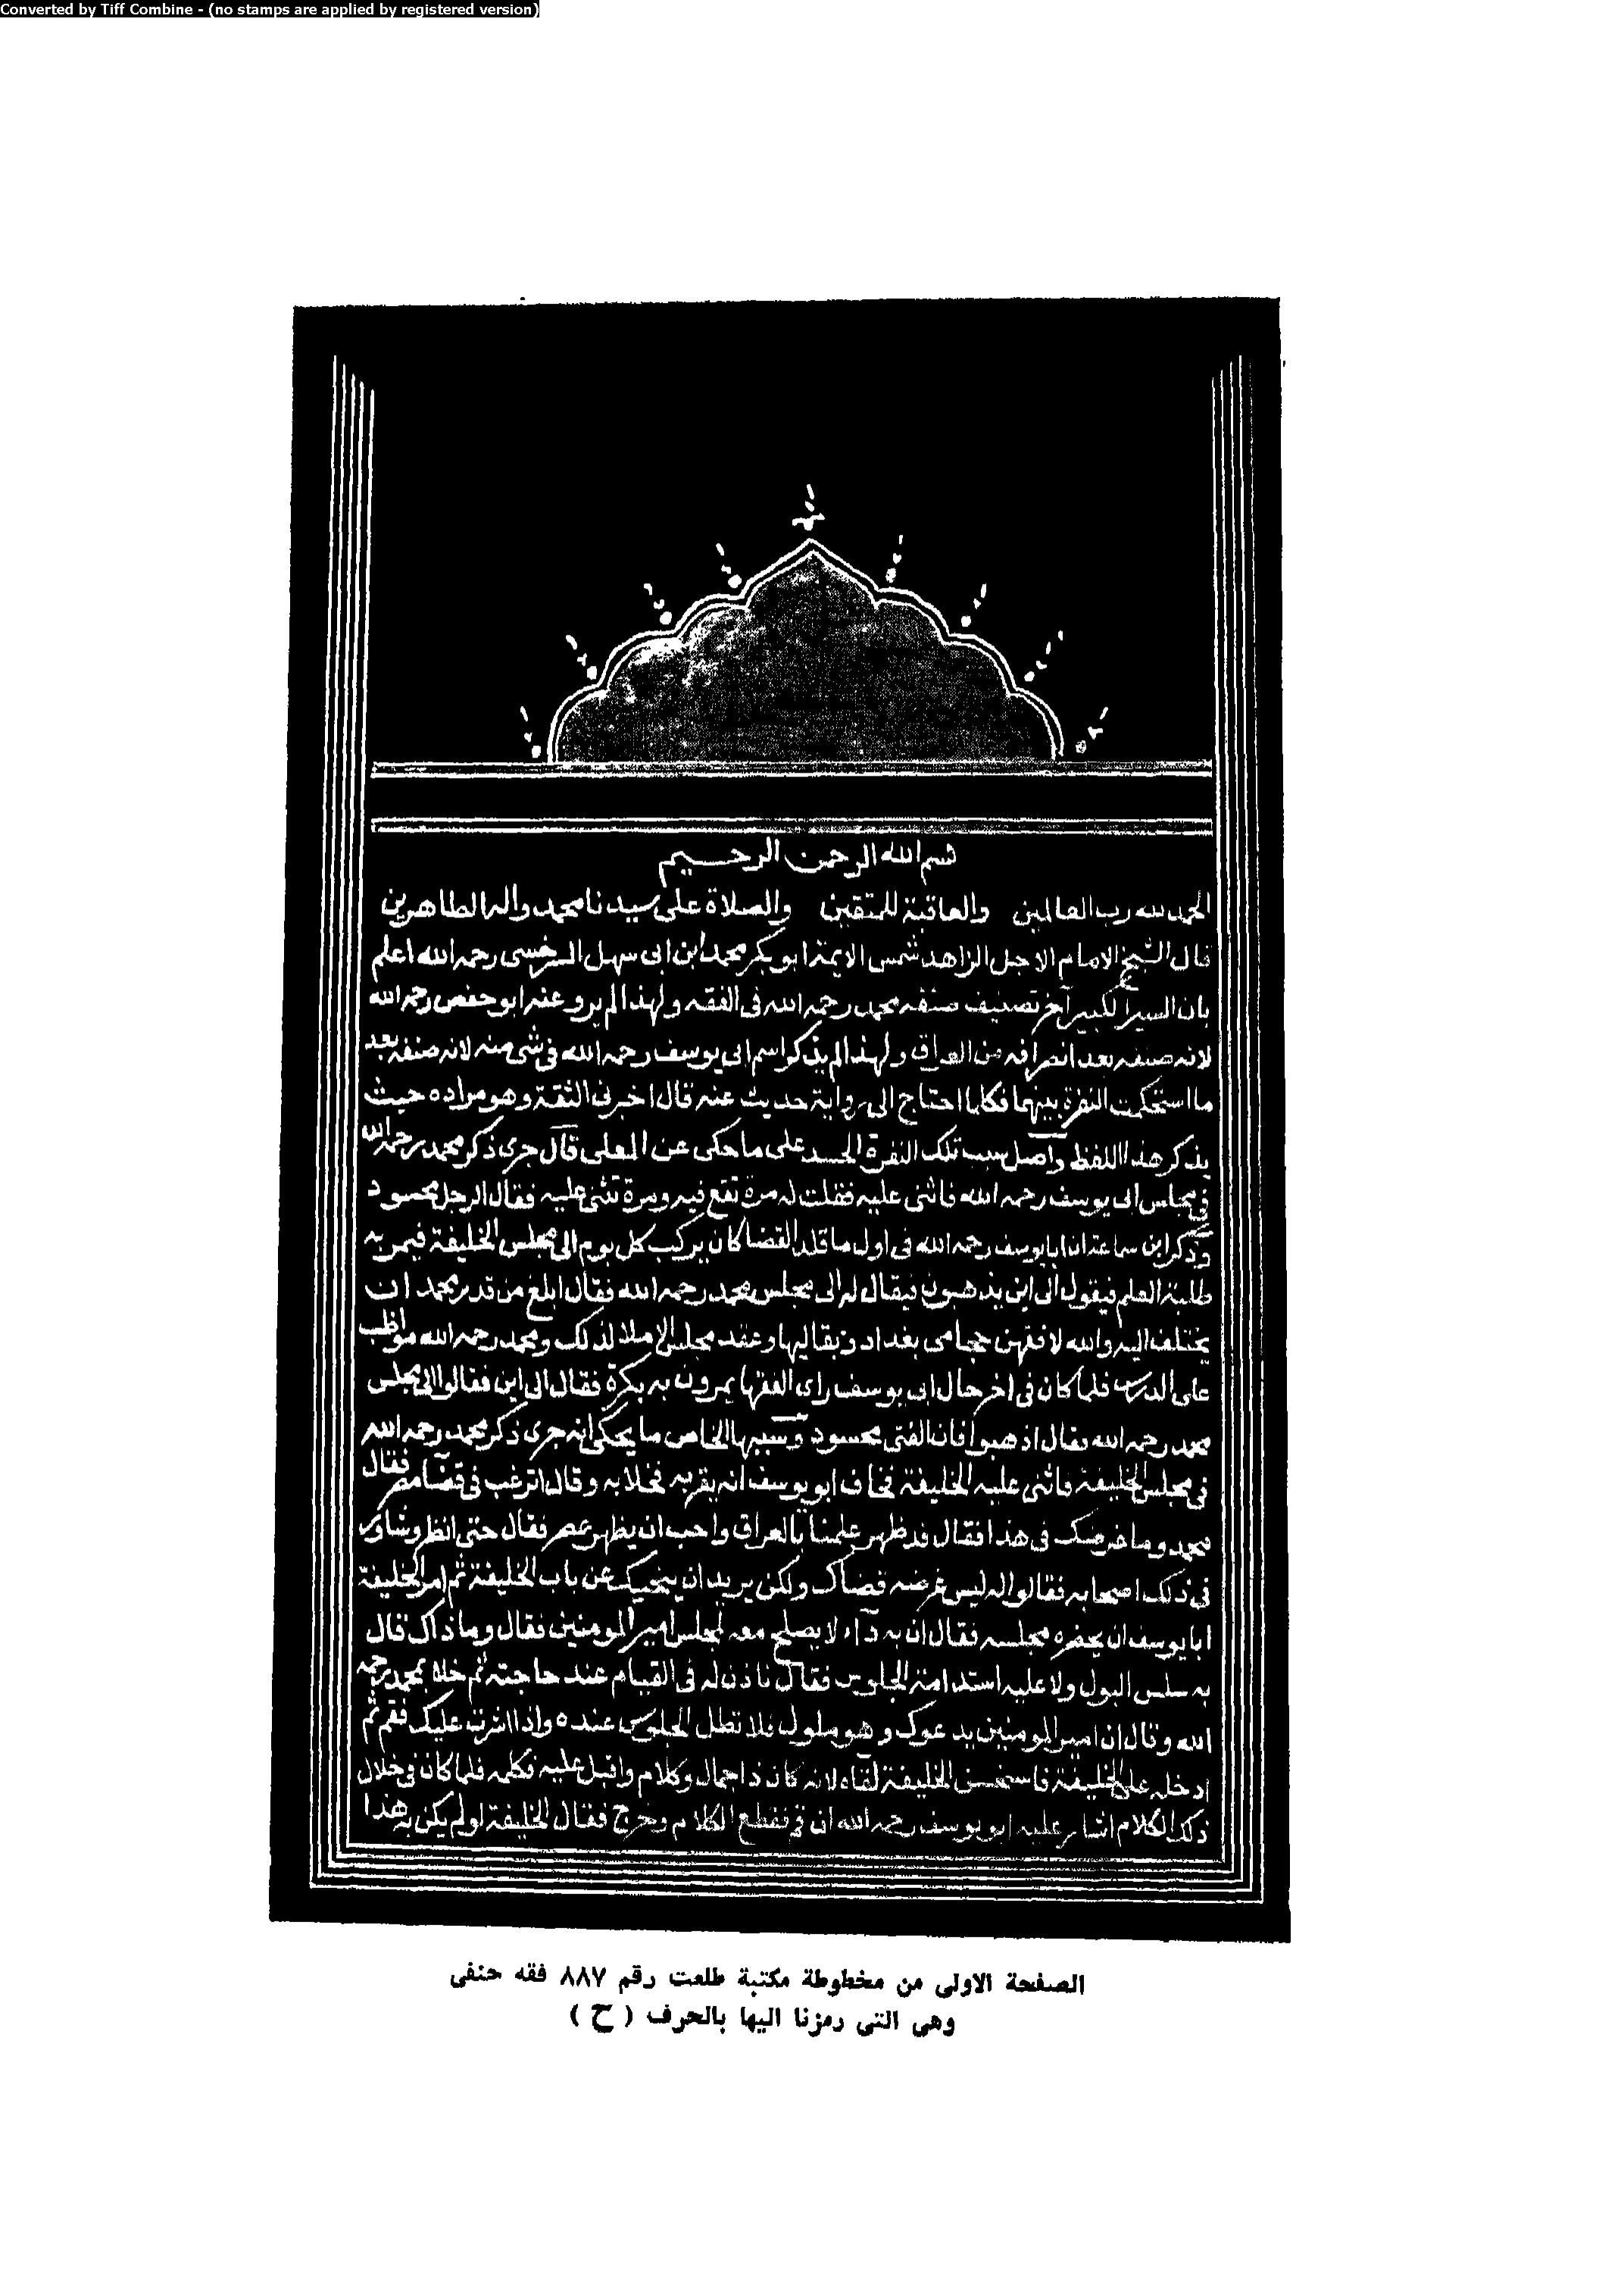 Converted by Tiff Combine - (no stamps are applied by registered version)
بسم الله الرحمن الرحيم
الحمد لله رب العالمين والعاقبة للمتقين والصلاة على سيدنا محمد واله الطاهرين
قال الشيخ الامام الاجل الزاهد شمس الايمة ابو بكر محمد ابن ابى سهل السرخسى رحمه الله اعلم
بان السير الكبير آخر تصنيف صنفه محمد رحمه الله فى الفقه ولهذا لم يروه عنه ابو حفص رحمه الله
لانه صنفه بعد انصرافه من العراق ولهذا لم يذكر اسم ابى يوسف رحمه الله فى شى منه لانه صنفه بعد
ما استحكمت النفرة بينهما فكلما احتاج الى رواية حديث عنه قال اخبرنى الثقة وهو مراده حيث
يذكر هذا اللفظ واصل سبب تلك النفرة الحسد على ما حكى عن المعلى قال جرى ذكر محمد رحمه الله
فى مجلس ابى يوسف رحمه الله فاثنى عليه فقلت له مرة تقع فيه ومرة تثنى عليه فقال الرجل محسود
وذكر ابن سماعة ان ابا يوسف رحمه الله فى اول ما قلد القضا كان يركب كل يوم الى مجلس الخليفة فيمر به
طلبة العلم فيقول الى اين يذهبون فيقال له الى مجلس محمد رحمه الله فقال ابلغ من قدر محمد ان
يختلف اليه والله لافقهن حجامى بغداد وبقاليها وعقد مجلس الاملا لذلك ومحمد رحمه الله مواظب
على الدرس فلما كان فى اخر حال ابى يوسف راى الفقها يمرون به بكرة فقال الى اين فقالوا الى مجلس
محمد رحمه الله فقال اذهبوا فان الفتى محسود وسببها الخاص ما يحكى انه جرى ذكر محمد رحمه الله
فى مجلس الخليفة فاثنى عليه الخليفة فخاف ابو يوسف انه يقربه فخلا به وقال اترغب فى قضا مصر فقال
محمد وما غرضك فى هذا فقال قد ظهر علمنا بالعراق واحب ان يظهر بمصر فقال حتى انظر وشاور
فى ذلك اصحابه فقالوا له ليس غرضه قضاك ولكن يريد ان ينحيك عن باب الخليفة ثم امر الخليفة
ابا يوسف ان يحضره مجلسه فقال ان به دآء لا يصلح معه لمجلس امير المومنين فقال وما ذاك قال
به سلس البول ولا عليه استدامة الجلوس فقال ناذن له فى القيام عند حاجته ثم خلا بمحمد رحمه
الله وقال ان امير المومنين يدعوك وهو ملول فلا تطل الجلوس عنده واذا اشرت عليك فقم ثم
ادخله على الخليفة فاستحسن الخليفة لقاءه لانه كان ذا جمال وكلام واقبل عليه فكلمه فلما كان فى خلال
ذلك الكلام اشار عليه ابو يوسف رحمه الله ان قم فقطع الكلام وخرج فقال الخليفة لو لم يكن به هذا
الصفحة الاولى من مخطوطة مكتبة طلعت رقم ٨٨٧ فقه حنفى
وهى التى رمزنا اليها بالحرف ( ح )